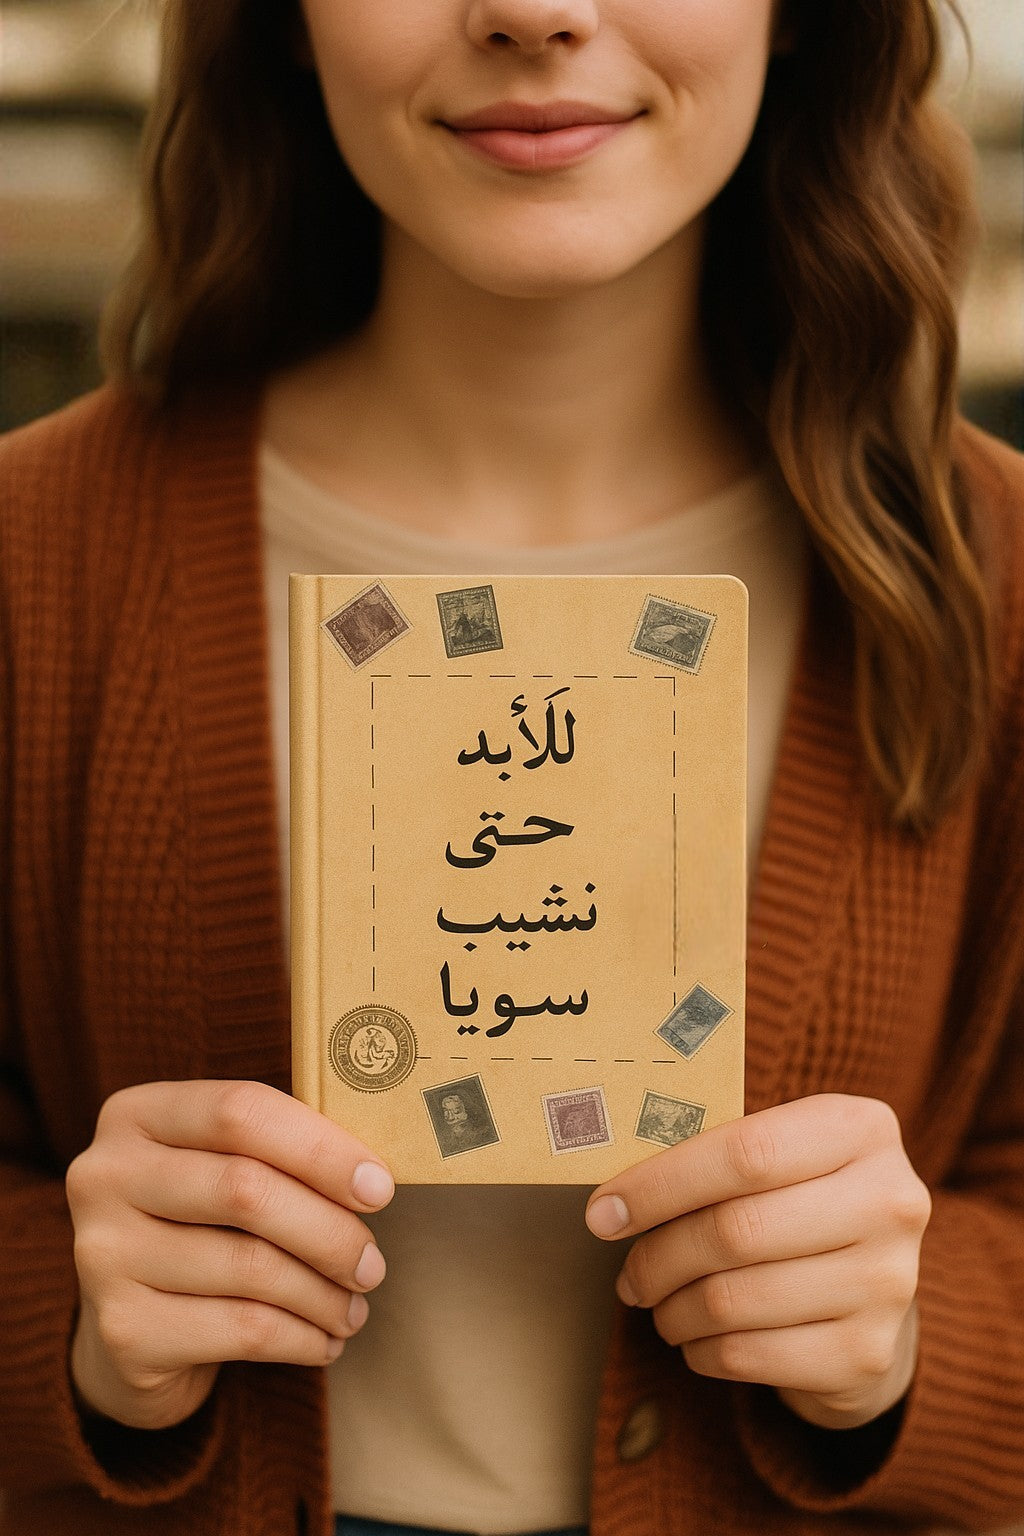 للَأبد
حتى
نشيب
سويا